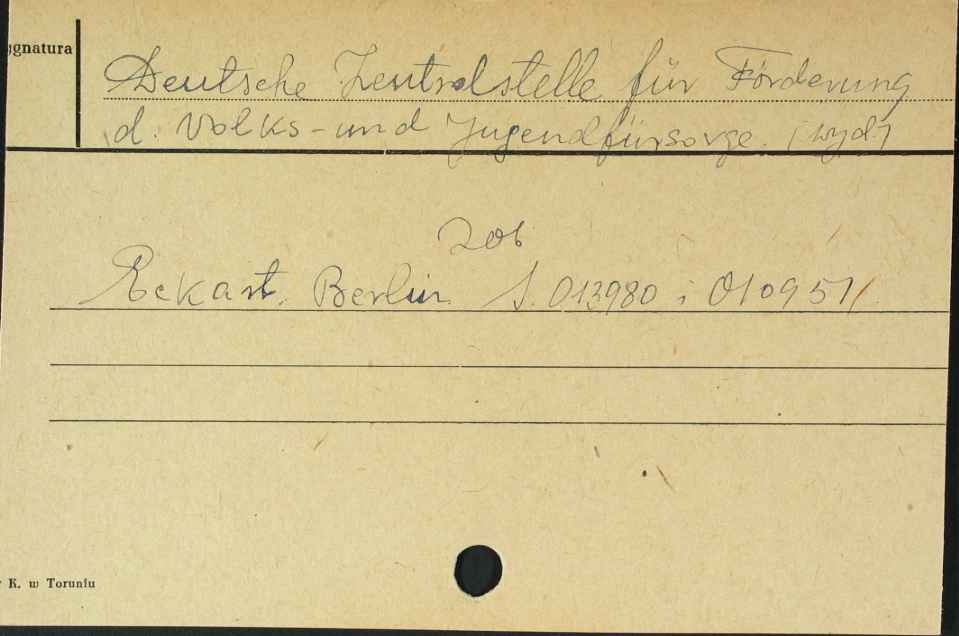 ygnatura
Deutsche Zentralstelle für Förderung
d. Volks-und Jugendfürsorge. (wyd.)
zob
Eckart. Berlin S. 013980 i 010951
K. w Toruniu